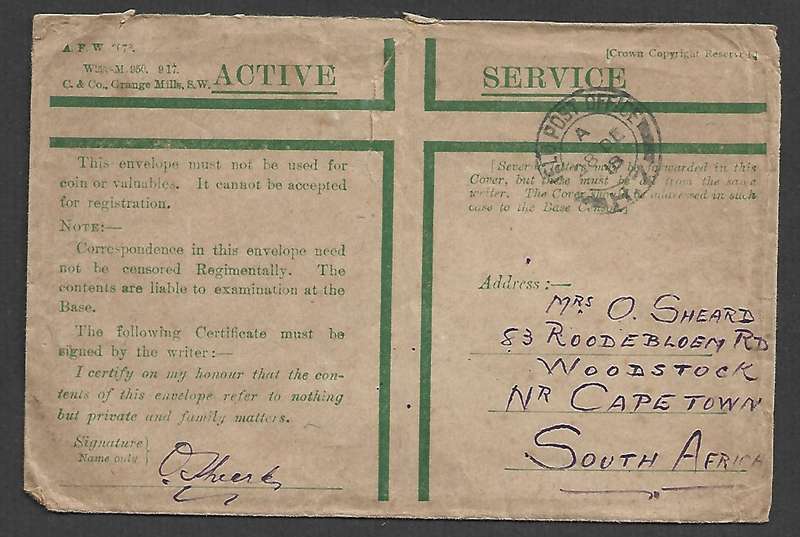 A. F. W.
C. & Co., Grange Mills, S.W.
[Crown Copyright Reserved]
ACTIVE SERVICE
This envelope must not be used for
coin or valuables. It cannot be accepted
for registration.
NOTE:—
Correspondence in this envelope need
not be censored Regimentally. The
contents are liable to examination at the
Base.
The following Certificate must be
signed by the writer:—
I certify on my honour that the con-
tents of this envelope refer to nothing
but private and family matters.
Signature
Name only
O. Sheard
FIELD POST OFFICE
A
8 DE
18
[Several letters may be forwarded in this
Cover, but these must be all from the same
writer. The Cover should be addressed in such
case to the Base Censor.]
Address:—
MRS O. SHEARD
83 ROODEBLOEM RD
WOODSTOCK
NR CAPETOWN
SOUTH AFRICA